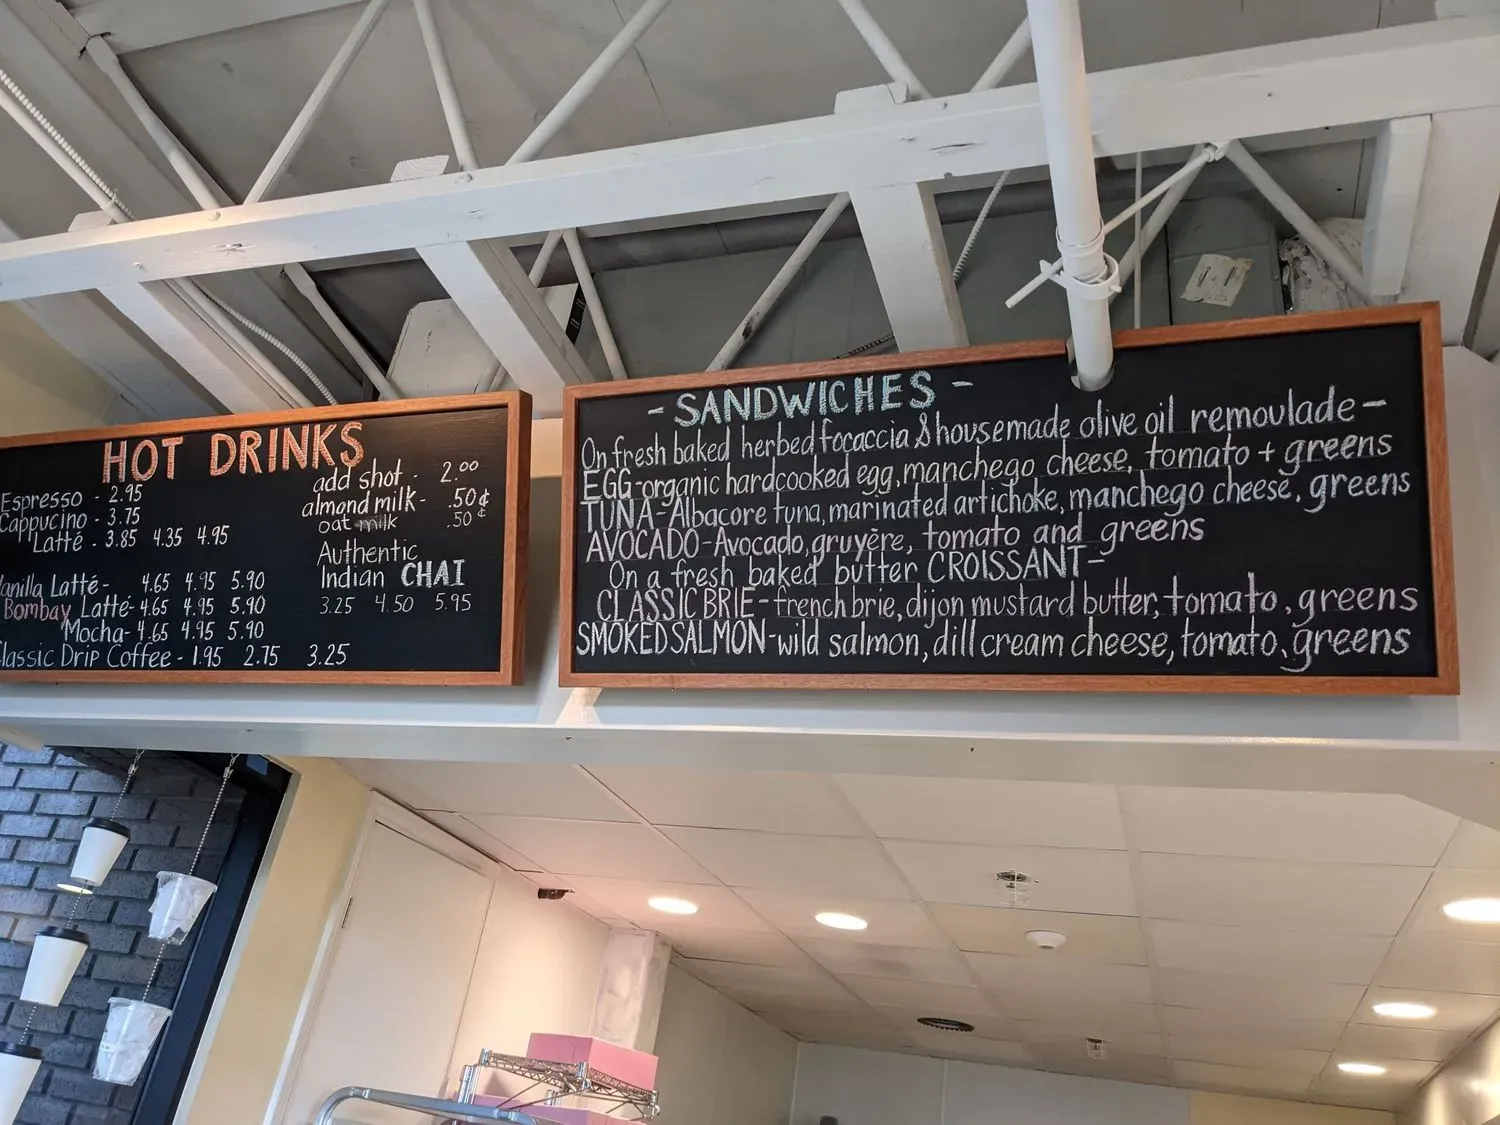 HOT DRINKS
Espresso - 2.95
Cappucino - 3.75
Latté - 3.85 4.35 4.95
Vanilla Latté - 4.65 4.95 5.90
Bombay Latté - 4.65 4.95 5.90
Mocha - 4.65 4.95 5.90
Classic Drip Coffee - 1.95 2.75 3.25
add shot - 2.00
almond milk - .50¢
oat milk .50¢
Authentic
Indian CHAI
3.25 4.50 5.95
- SANDWICHES -
On fresh baked herbed focaccia & housemade olive oil remoulade -
EGG - organic hardcooked egg, manchego cheese, tomato + greens
TUNA - Albacore tuna, marinated artichoke, manchego cheese, greens
AVOCADO - Avocado, gruyère, tomato and greens
On a fresh baked butter CROISSANT -
CLASSIC BRIE - french brie, dijon mustard butter, tomato, greens
SMOKED SALMON - wild salmon, dill cream cheese, tomato, greens